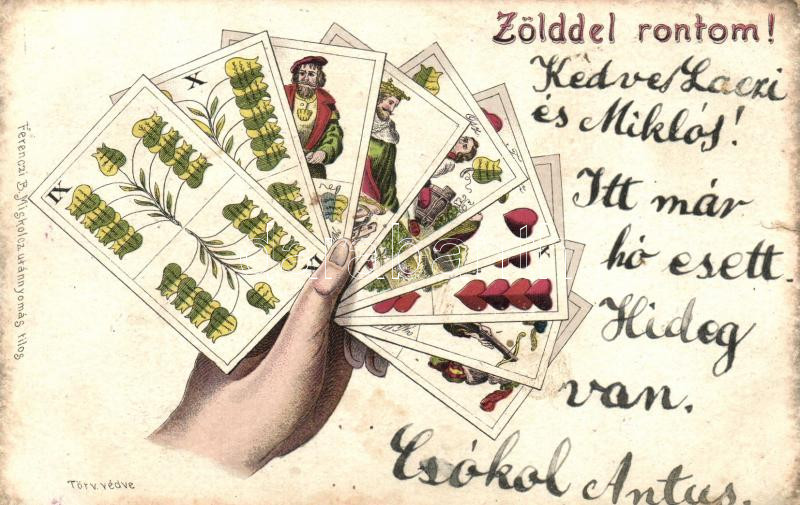 Zölddel rontom!
Kedves Laczi
és Miklós!
Itt már
hó esett.
Hideg
van.
Csókol Antus.
Ferenczi B. Miskolcz utánnyomás tilos
Törv. védve
IX
X